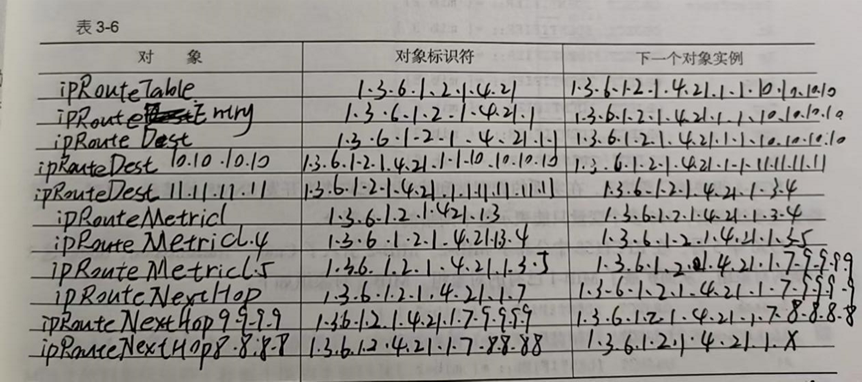 表 3-6
对 象 对象标识符 下一个对象实例
ipRouteTable 1.3.6.1.2.1.4.21 1.3.6.1.2.1.4.21.1.1.10.10.10.10
ipRouteEntry 1.3.6.1.2.1.4.21.1 1.3.6.1.2.1.4.21.1.1.10.10.10.10
ipRoute Dest 1.3.6.1.2.1.4.21.1.1 1.3.6.1.2.1.4.21.1.1.10.10.10.10
ipRouteDest 10.10.10.10 1.3.6.1.2.1.4.21.1.1.10.10.10.10 1.3.6.1.2.1.4.21.1.1.11.11.11.11
ipRouteDest 11.11.11.11 1.3.6.1.2.1.4.21.1.1.11.11.11.11 1.3.6.1.2.1.4.21.1.3.4
ipRouteMetric1 1.3.6.1.2.1.421.1.3 1.3.6.1.2.1.4.21.1.3.4
ipRoute Metric1.4 1.3.6.1.2.1.4.21.13.4 1.3.6.1.2.1.4.21.1.3.5
ipRoute Metric1.5 1.3.6.1.2.1.4.21.1.3.5 1.3.6.1.2.1.4.21.1.7.9.9.9.9
ipRoute NextHop 1.3.6.1.2.1.4.21.1.7 1.3.6.1.2.1.4.21.1.7.9.9.9.9
ipRoute NextHop 9.9.9.9 1.3.6.1.2.1.4.21.1.7.9.9.9.9 1.3.6.1.2.1.4.21.1.7.8.8.8.8
ipRouteNextHop8.8.8.8 1.3.6.1.2.4.21.1.7.8.8.8.8 1.3.6.1.2.1.4.21.1.X